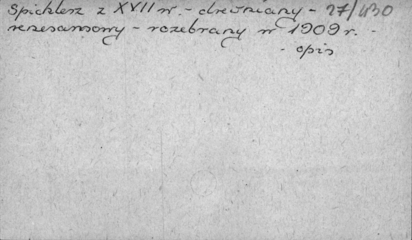 Spichlerz z XVII w. - drewniany - 27/430
renesansowy - rozebrany w 1909 r. -
- opis